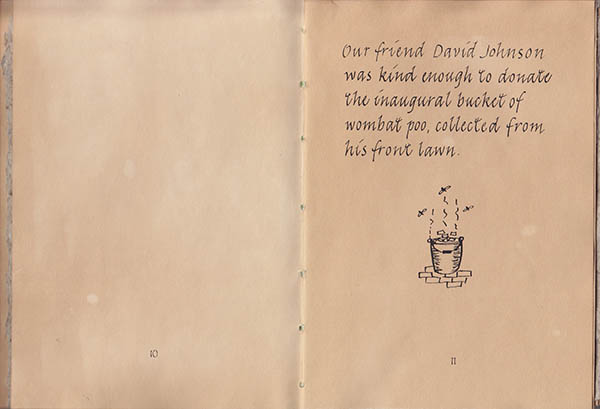 Our friend David Johnson
was kind enough to donate
the inaugural bucket of
wombat poo, collected from
his front lawn.
10
11